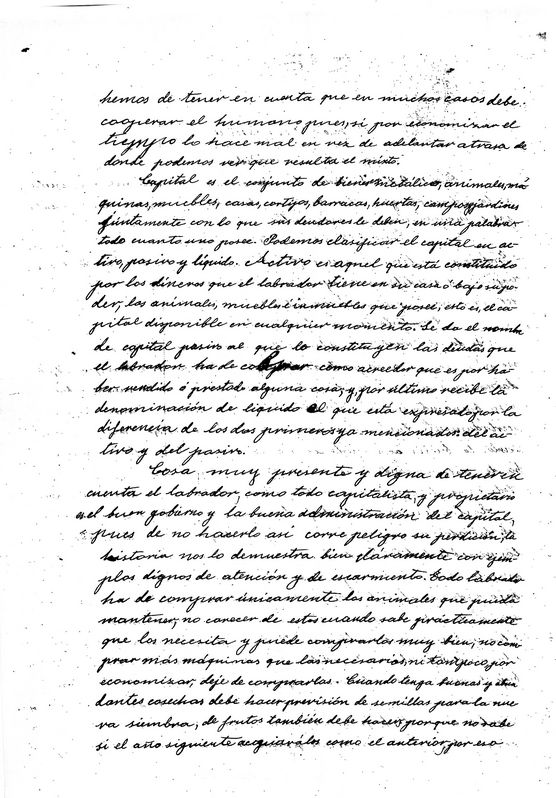 hemos de tener en cuenta que en muchos casos debe
cooperar el humano pues, si por economizar el
tiempo lo hace mal en vez de adelantar atrasa de
donde podemos ver que resulta el mixto.
Capital es el conjunto de bienes metálicos, animales, má
quinas, muebles, casas, cortijos, barracas, huertas, campos y jardines
juntamente con lo que sus deudores le deben, en una palabra
todo cuanto uno posee. Podemos clasificar el capital en ac-
tivo, pasivo y líquido. Activo es aquel que está constituido
por los dineros que el labrador tiene en su casa ó bajo su po-
der, los animales, muebles é inmuebles que posee, esto es, el ca-
pital disponible en cualquier momento. Se da el nombre
de capital pasivo al que lo constituyen las deudas que
el labrador ha de cobrar como acreedor que es por ha
ber vendido ó prestado alguna cosa, y, por último recibe la
denominación de líquido el que está expresado por la
diferencia de los dos primeros ya mencionados del ac-
tivo y del pasivo.
Cosa muy presente y digna de tener en
cuenta el labrador, como todo capitalista, y propietario
es el buen gobierno y la buena administración del capital,
pues de no hacerlo así corre peligro su perdición, la
historia nos lo demuestra bien claramente con ejem
plos dignos de atención y de escarmiento. Todo labrador
ha de comprar únicamente los animales que pueda
mantener, no carecer de estos cuando sabe prácticamente
que los necesita y puede comprarlos muy bien; no com
prar más máquinas que las necesarias, ni tampoco por
economizar, deje de comprarlas. Cuando tenga buenas y abun
dantes cosechas debe hacer previsión de semillas para la nue
va siembra, de frutos también debe hacer, porque no sabe
si el año siguiente como el anterior, por eso